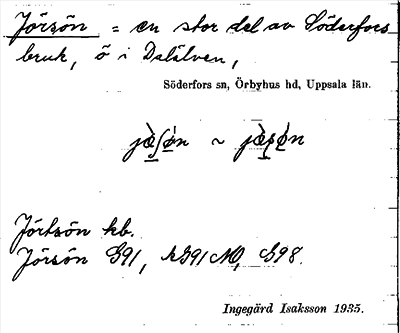 Jörsön = en stor del av Söderfors
bruk, ö i Dalälven,
Söderfors sn, Örbyhus hd, Uppsala län.
Jörtsön kb.
Jörsön G91, G98.
Ingegärd Isaksson 1935.